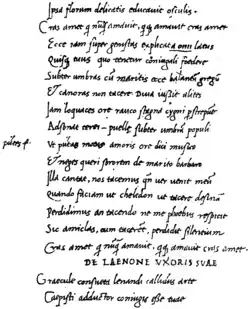 Ipsa florum delicatis educauit osculis.
Cras amet q̃ nũq̃ amauit, qq̃ amauit cras amet
Ecce iam super genestas explicat a omu latus
Quisq; eaus quo tenetur coniugali foedere
Subter umbras cũ maritis ecce balantũ gregũ
Et canoras non tacere Diua iussit alites
Iam loquaces ore rauco stagna cygni p̃strepũt
Adsonat terei puellę subter umbrã populi
putes f. Vt putas motus amoris ore dici musico
Et neges queri sororem de marito barbaro
Illa cantat, nos tacemus qñ uer uenit meũ
Quando faciam ut chelidon ut tacere desinã
Perdidimus an tacendo ne me phoebus respicit
Sic amiclas, cum tacerẽt, perdidit silentium
Cras amet q̃ nũq̃ amauit, qq̃ amauit cras amet.
DE LAENONE VXORIS SVAE
Graecule consueta lenandi callidus arte
Coepisti adductor coniugis esse tuae